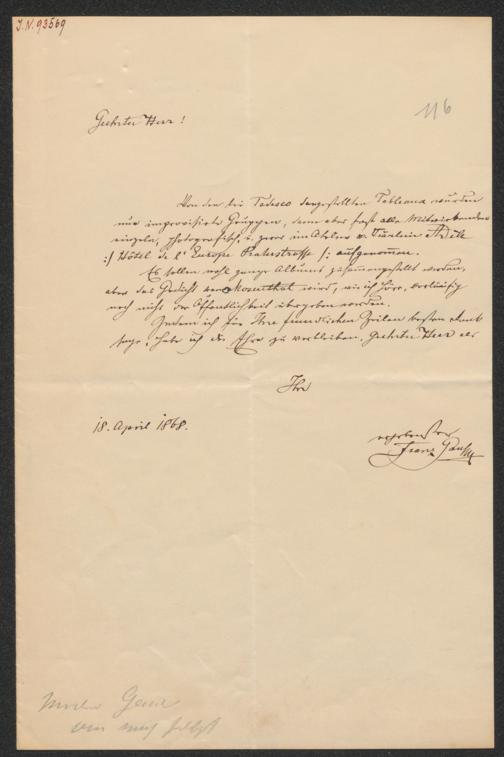 J.N. 93569
116
Geehrter Herr!
Von den bei Todesco dargestellten Tableaux wurden
nur improvisirte Gruppen, dann aber fast alle Mitwirkenden
einzeln, photografisch, u. zwar im Atelier v. Fräulein Adèle
:/ Hôtel de l'Europe Praterstrasse /: aufgenommen.
Es sollen wohl ganze Albums zusammengestellt werden,
aber das Gedicht von Mosenthal wird, wie ich höre, vorläufig
noch nicht der Öffentlichkeit übergeben werden.
Indem ich für Ihre freundlichen Zeilen besten Dank
sage, habe ich die Ehre zu verbleiben, geehrter Herr als
Ihr
18. April 1868.
ergebenster
Franz